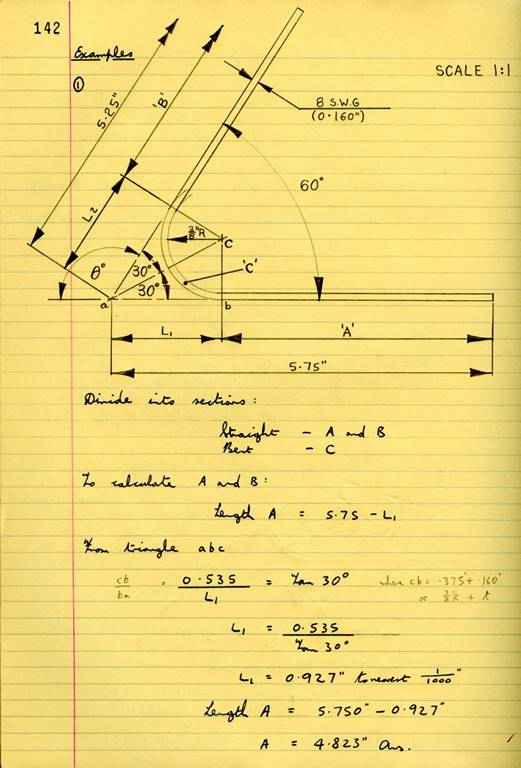 142
Examples
①
SCALE 1:1
5.25"
'B'
8 S.W.G
(0.160")
L2
60°
3/8"R
c
θ°
30°
30°
'C'
a
b
L1
'A'
5.75"
Divide into sections:
Straight - A and B
Bent - C
To calculate A and B:
Length A = 5.75 - L1
From triangle abc
cb/ba = 0.535/L1 = Tan 30° when cb = .375 + .160"
or 3/8R + t
L1 = 0.535/Tan 30°
L1 = 0.927" to nearest 1/1000"
Length A = 5.750" - 0.927"
A = 4.823" Ans.